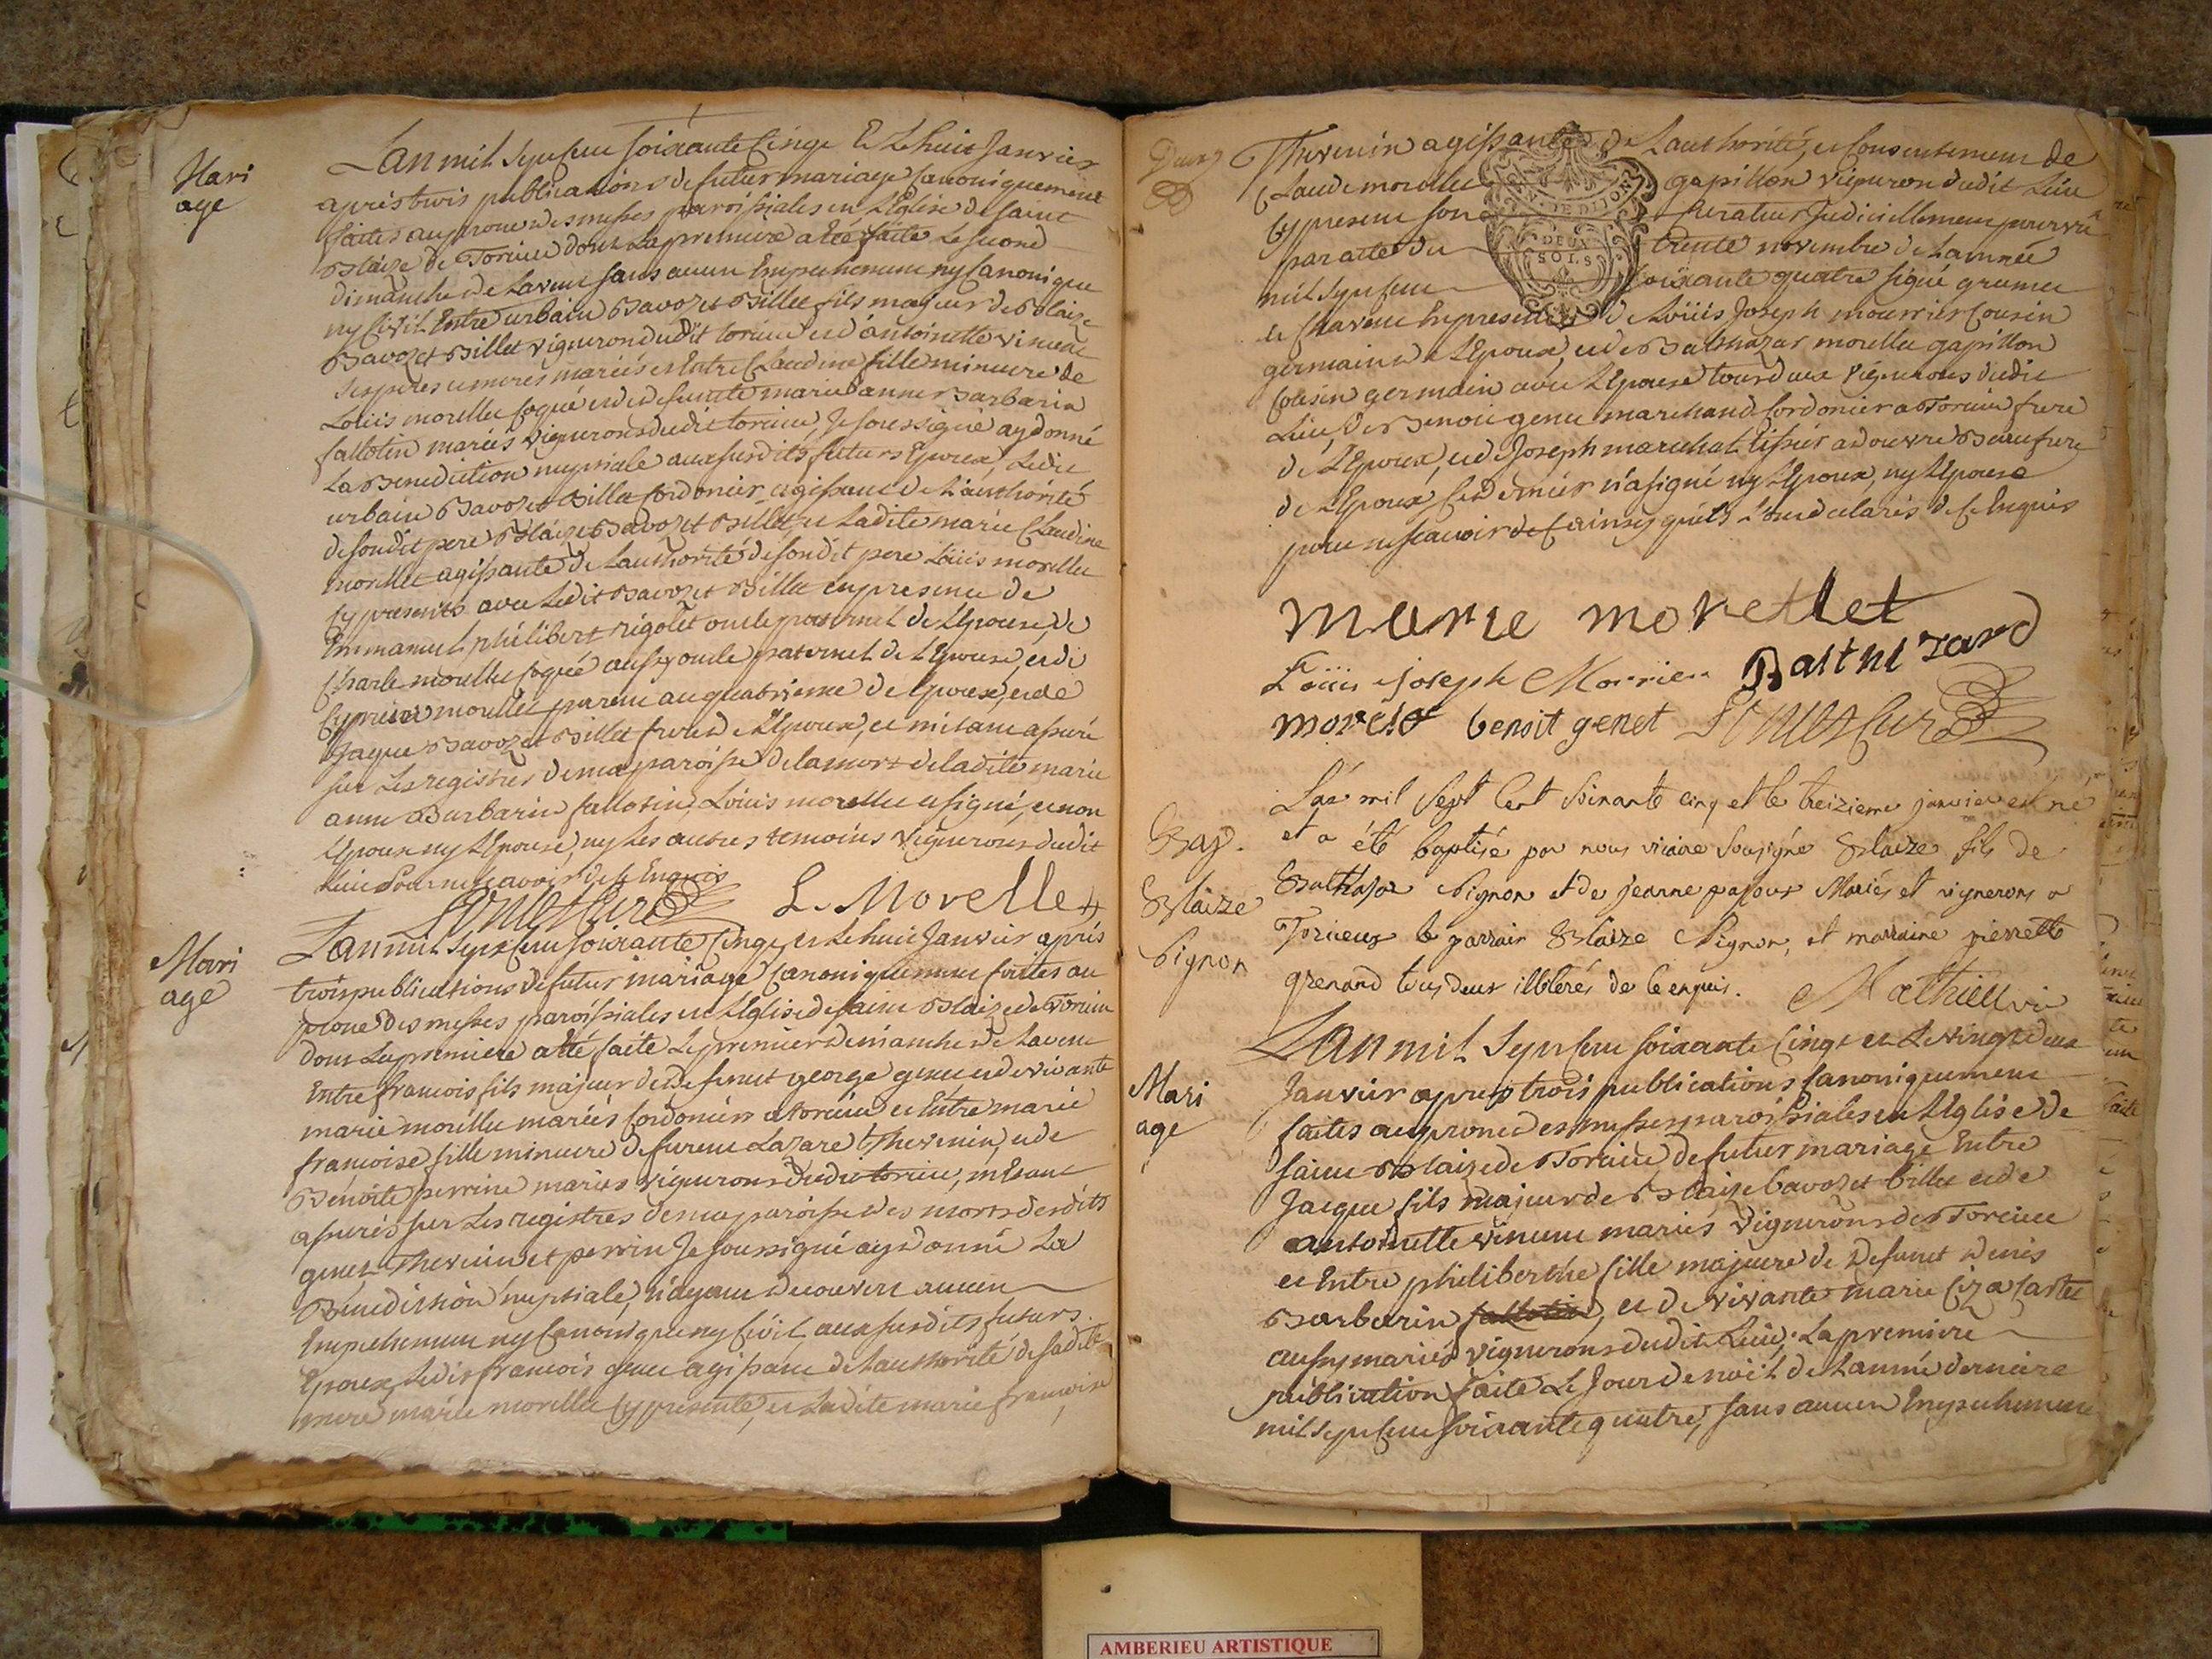 Mari
age
Lan mil sept cent soixante Cinqe Et Le huit Janvier
apres trois publications de futur mariage Canoniquement
faites au prone des messes paroissiales en L'Eglise de saint
Blaize de Torcieu dont La premiere a Eté faite Le second
dimanche de Lavent sans aucun Empechement ny Canonique
ny Civil Entre urbain Bavozet Billet fils majeur de Blaize
Bavozet Billet vigneron dudit torcieu et d'antoinette
ses peres et meres mariés et Entre Claudine fille mineure de
Loüis morellet et de defunte marie anne Barbarin
fallotin mariés vignerons dudit torcieu, Je soussigné ay donné
La Benediction nuptiale aux susdits futurs Epoux, Ledit
urbain Bavozet Billet Cordonier agissant de L'authorité
de sondit pere Blaize Bavozet Billet et Ladite marie Claudine
morellet agissante de Lauthorité de sondit pere Loüis morellet
Cy presents avec Ledit Bavozet Billet en presence de
Emmanuel philibert rigolet oncle de L'Epouse, de
Charle morellet aussy oncle paternel de L'Epouse, et de
morellet parent au quatrieme de Epoux, et de
Jaque Bavozet Billet frere de L'Epoux, et m'etant assuré
sur Les registres de ma paroisse de la mort de ladite marie
anne Barbarin fallotin, Loüis morellet a signé, et non
L'Epoux ny L'Epouse, ny Les autres temoins vignerons dudit
Lieu Pour ne scavoir de ce Enquis
L. Morellet
Mari
age
Lan mil sept cent soixante Cinqe, et Le huit Janvier après
trois publications de futur mariage Canoniquement faites au
prone des messes paroissiales en L'Eglise de saint Blaize de Torcieu
dont La premiere a eté faite Le premier dimanche de Lavent
Entre francois fils majeur de defunct george genet et de vivante
marie morellet mariés Cordoniers a torcieu et Entre marie
françoise fille mineure de furent Lazare Thevenin, et de
Benoite perrine mariés vignerons dudit torcieu, m'etant
assurés sur Les registres de ma paroisse des morts desdits
genet Thevenin et perrin Je soussigné ay donné La
Benediction nuptiale, n'ayant decouvert aucun
Empechement ny Canonique ny Civil aux susdits futurs
Epoux, Ledit francois genet agissant de Lauthorité de sadite
mere marie morellet Cy presente, et Ladite marie francoise
Thevenin agissante de Lauthorité, et Consentement de
Claude morellet gapillon vigneron dudit Lieu
Cy present son Curateur Judiciellement pourvu
par acte du trente novembre de L'année
DEUX
SOLS
mil sept cent soixante quatre signé
En presence de Loüis Joseph mourrier Cousin
germain de L'Epoux, et de Balthazar morellet gapillon
Cousin germain avec L'Epouse tous deux vignerons dudit
Lieu, de Benoit genet marchand Cordonier a Torcieu frere
de L'Epoux, et de Joseph marechal tissier Beaufrere
de L'Epoux, Ce dernier n'a signé ny L'Epoux, ny L'Epouse
pour ne scavoir de Ce ainsy qu'ils L'ont declarés de Ce Enquis
marie morellet
Loüis joseph Morrier Balthezard
morelet benoit genet
Bap.
Blaize
Pignon
L'an mil sept Cent soixante cinq et le treizieme janvier est né
et a été baptisé par nous vicaire sousigné Blaize fils de
Balthasar Pignon et de jeanne Mariés et vignerons a
Torcieux le parrain Blaize Pignon, et marraine pierrette
grenand tous deux illiterés de ce enquis.
Mathieu vic
Mari
age
Lan mil sept cent soixante Cinqe et Le vingt deux
Janvier apres trois publications Canoniquement
faites au prone des messes paroissiales en L'Eglise de
saint Blaize de Torcieu de futur mariage Entre
Jacque fils majeur de Blaize bavozet billet et de
antoinette mariés vignerons de Torcieu
et Entre philiberthe fille majeure de defunct denis
Barbarin, et de vivante marie
aussy mariés vignerons dudit Lieu, La premiere
publication faite Le Jour de noël de L'année derniere
mil sept cent soixante quatre, sans aucun Empechement
AMBERIEU ARTISTIQUE